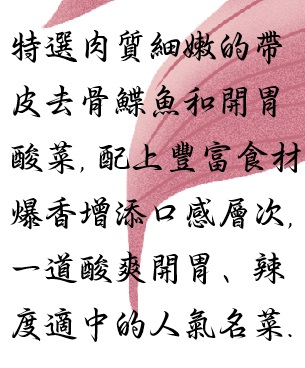 特選肉質細嫩的帶
皮去骨鰈魚和開胃
酸菜, 配上豐富食材
爆香增添口感層次,
一道酸爽開胃、辣
度適中的人氣名菜.